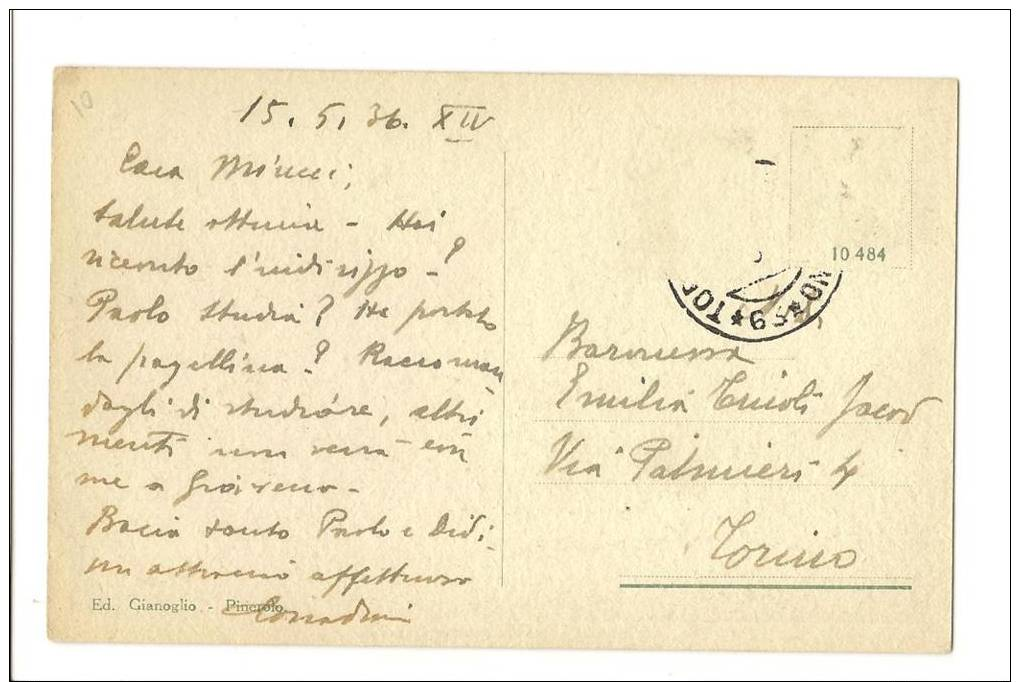 10
15. 5. 36. XIV
Cara Mimcci,
Salute ottima - Hai
ricevuto l'indirizzo - ?
Paolo studia? Ha portato
la pagellina - ? Raccoman
dagli di studiare, altri
menti non verrà con
me a Giaveno -
Bacia tanto Paolo e Didi.
un abbraccio affettuoso
Corradini
Ed. Gianoglio - Pinerolo
10 484
9 * TO
Baronessa
Emilia
Via Palmieri 4
Torino